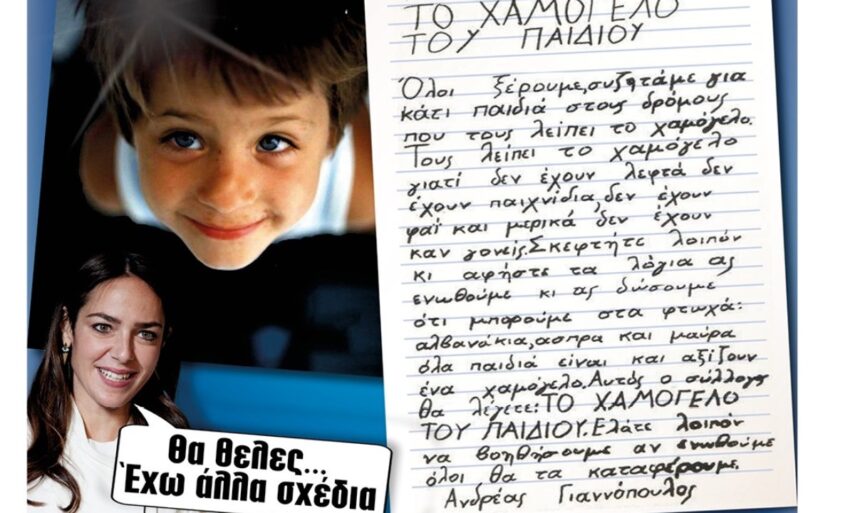 ΤΟ ΧΑΜΟΓΕΛΟ
ΤΟΥ ΠΑΙΔΙΟΥ
Όλοι ξέρουμε,συζητάμε για
κάτι παιδιά στους δρόμους
που τους λείπει το χαμόγελο.
Τους λείπει το χαμόγελο
γιατί δεν έχουν λεφτά δεν
έχουν παιχνίδια,δεν έχουν
φαΐ και μερικά δεν έχουν
καν γονείς.Σκεφτήτε λοιπόν
κι αφήστε τα λόγια ας
ενωθούμε κι ας δώσουμε
ότι μπορούμε στα φτωχά:
αλβανάκια,ασπρα και μαύρα
όλα παιδιά είναι και αξίζουν
ένα χαμόγελο.Αυτός ο σύλλογς
θα λέγετε:ΤΟ ΧΑΜΟΓΕΛΟ
ΤΟΥ ΠΑΙΔΙΟΥ.Ελάτε λοιπόν
να βοηθήσουμε αν ενωθούμε
όλοι θα τα καταφέρουμε.
Ανδρέας Γιαννόπουλος
Θα θελες...
Έχω άλλα σχέδια